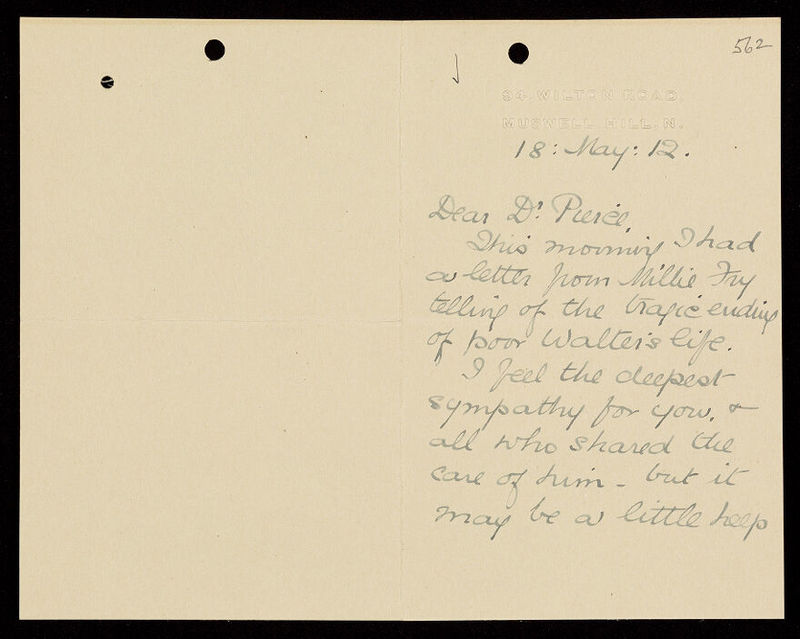 562
94, WILTON ROAD,
MUSWELL HILL, N.
18: May: 12.
Dear Dr. Pierce,
This morning I had
a letter from Millie Fry
telling of the tragic ending
of poor Walter's life.
I feel the deepest
sympathy for you, &
all who shared the
care of him - but it
may be a little help